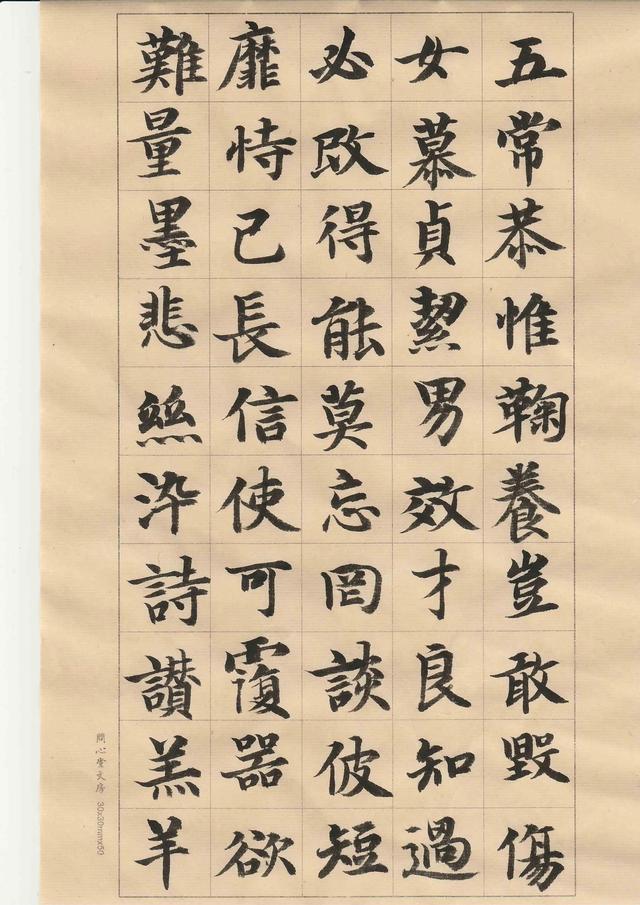 五常恭惟鞠養豈敢毀傷
女慕貞絜男效才良知過
必改得能莫忘罔談彼短
靡恃己長信使可覆器欲
難量墨悲絲染詩讚羔羊
問心堂文房 30x30mmx50